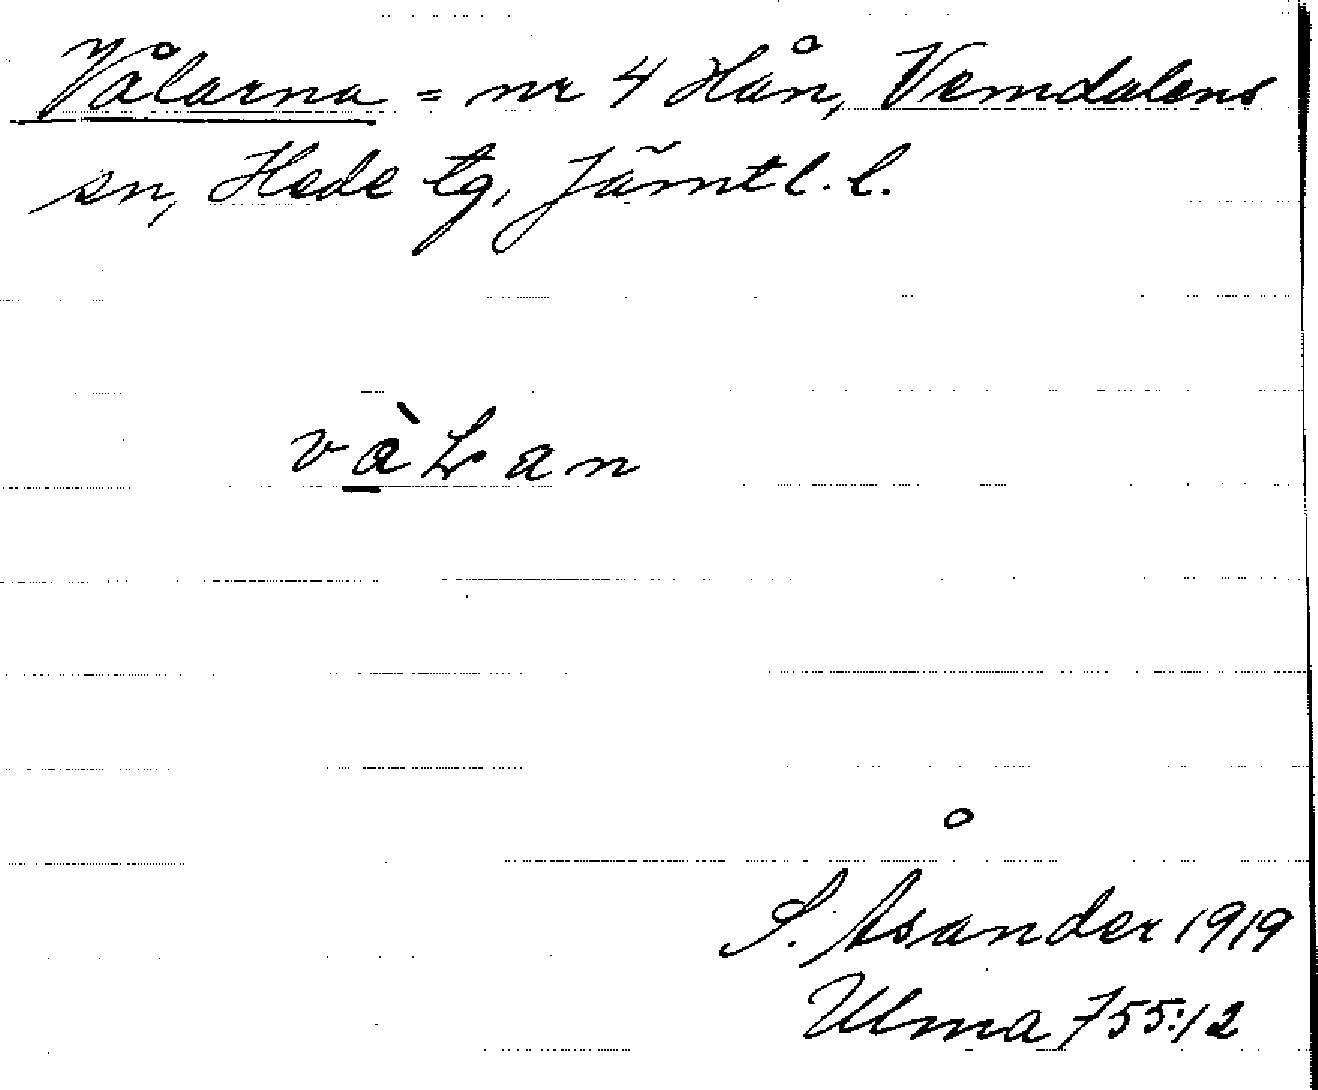 Vålarna = nr 4 Hån, Vemdalens
sn, Hede tg, Jämtl. l.
vàLan
S. Åsander 1919
Ulma 755:12